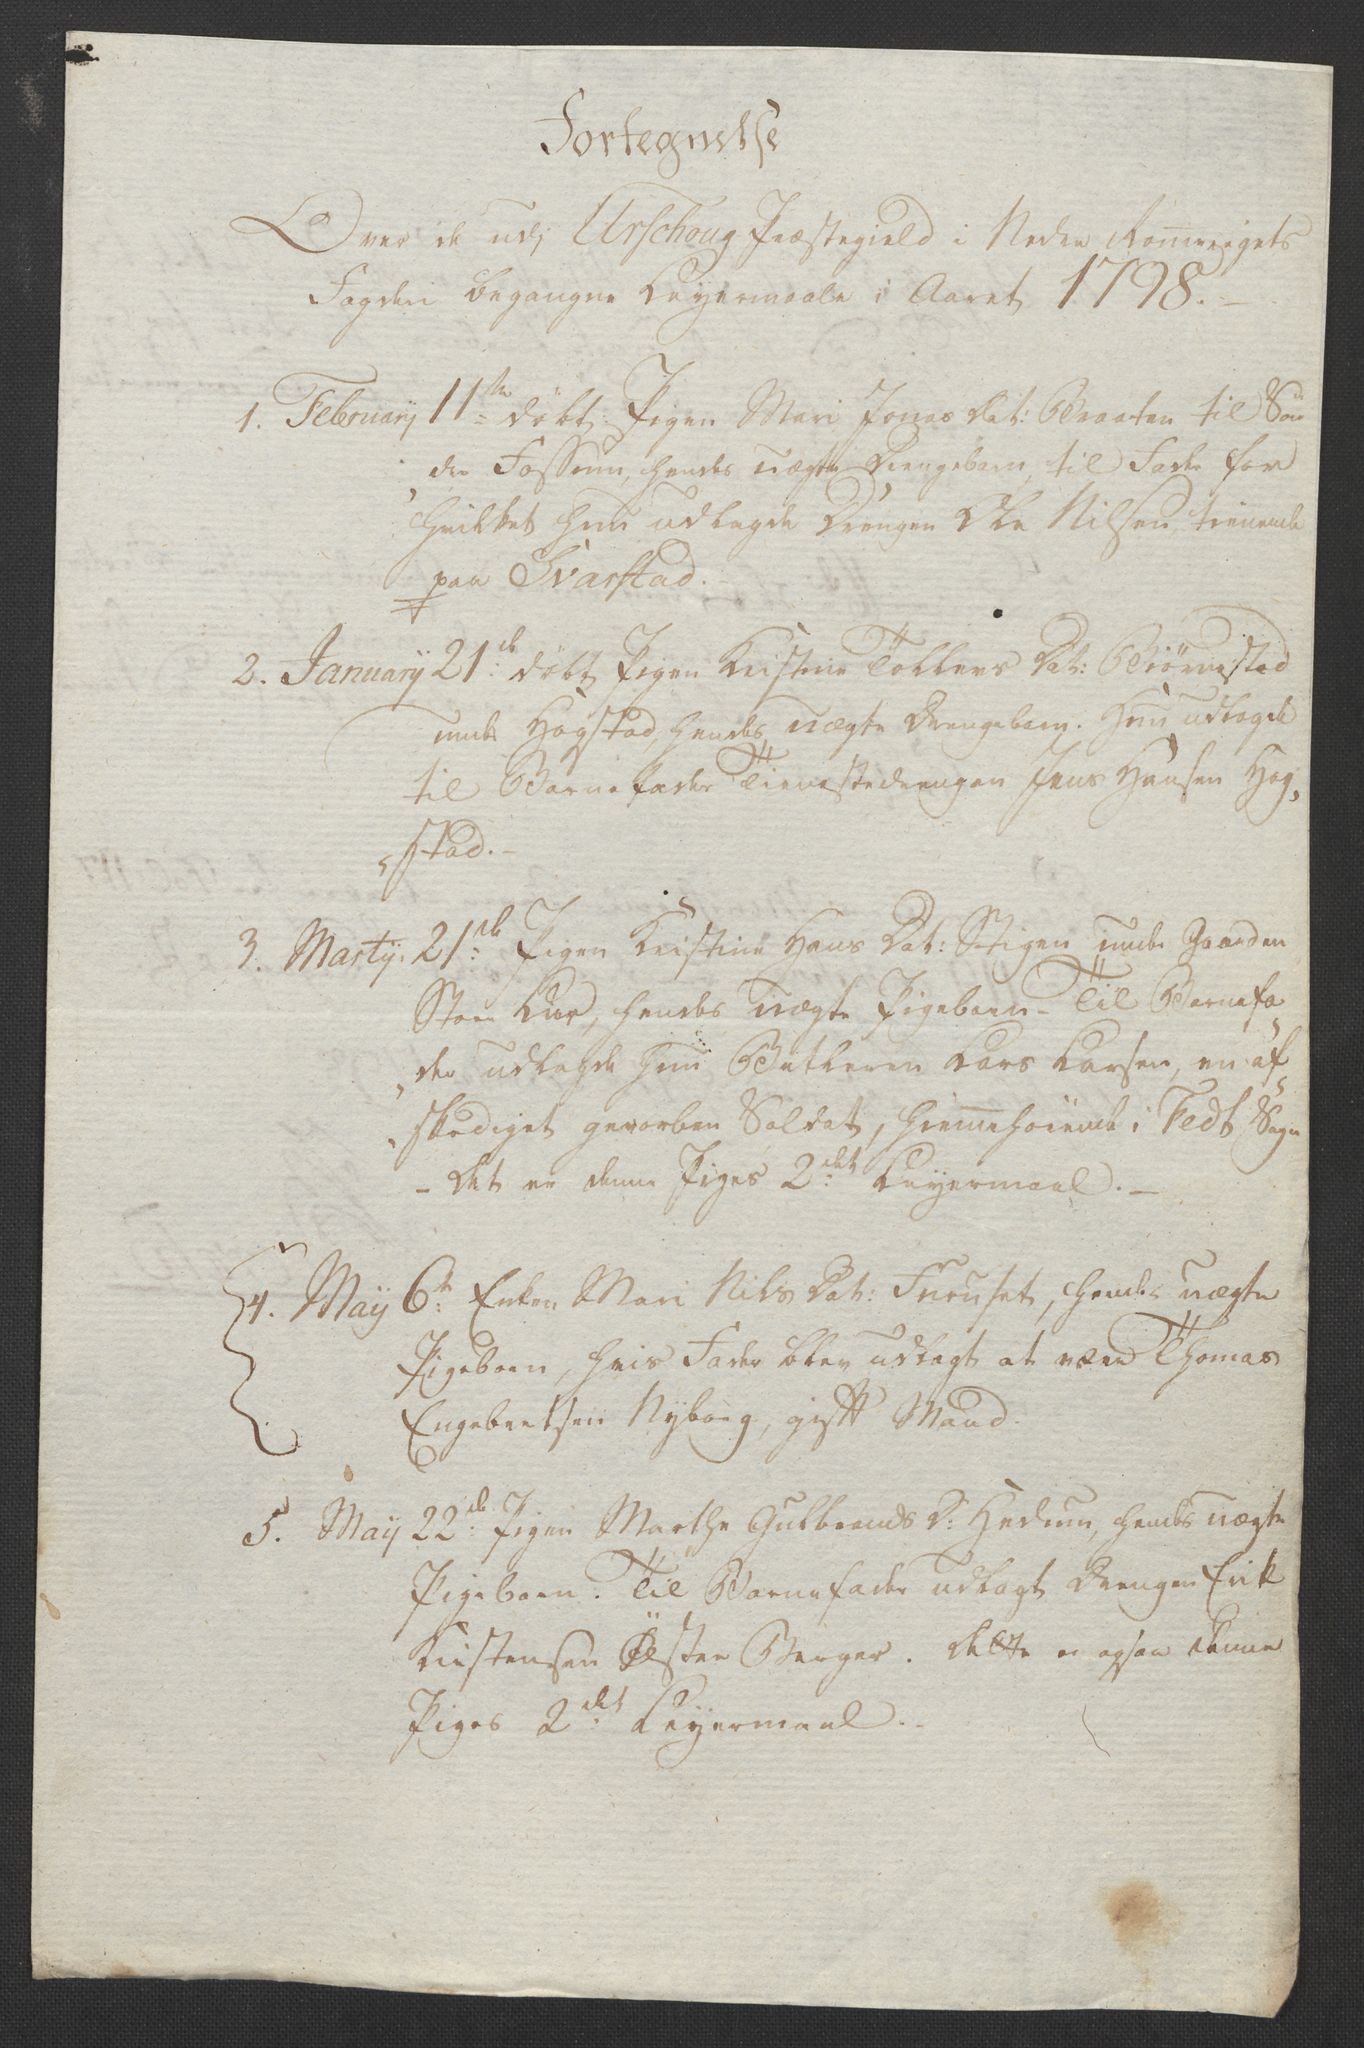 Fortegnelse
Over de udj Urschoug Præstegield i Neder Romerigets
Fogderi begangne Leyermaale i Aaret 1798.
1. February 11te døbt Pigen Mari Jonas Dat: Braaten til Søn
der Fossum, hendes uægte Drengebarn, til Fader for
hvilket hun udlagde Drengen Ole Nilsen tienende
paa Svarstad.
2. January 21de døbt Pigen Kristine Tollevs Dat: Biørnestad
unde Høgstad, hendes uægte Drengebarn. Hun udlagde
til Barnefader Tienestedrengen Jens Hansen Høg,
stad.
3. Martÿ. 21de Pigen Kristine Hans Dat: Stigen unde Gaarden
Store Lur, hendes uægte Pigebarn - Til Barnefa
der udlagde hun Betleren Lars Larsen, en af
skediget gevorben Soldat, hiemmehørende i Fedt Sogn
- det er denne Piges 2det Leyermaal.
4. Maÿ 6te Enken Mari Nils Dat: Furuset, hendes uægte
Pigebarn, hvis Fader blev udlagt at være Thomas
Engebretsen Nyborg, gift Mand.
5. Maÿ 22de Pigen Marthe Gulbrands D: Hedum, hendes uægte
Pigebarn. Til Barnefader udlagt Drengen Erik
Kristensen Øster Berger. Dette er ogsaa denne
Piges 2det Leyermaal.